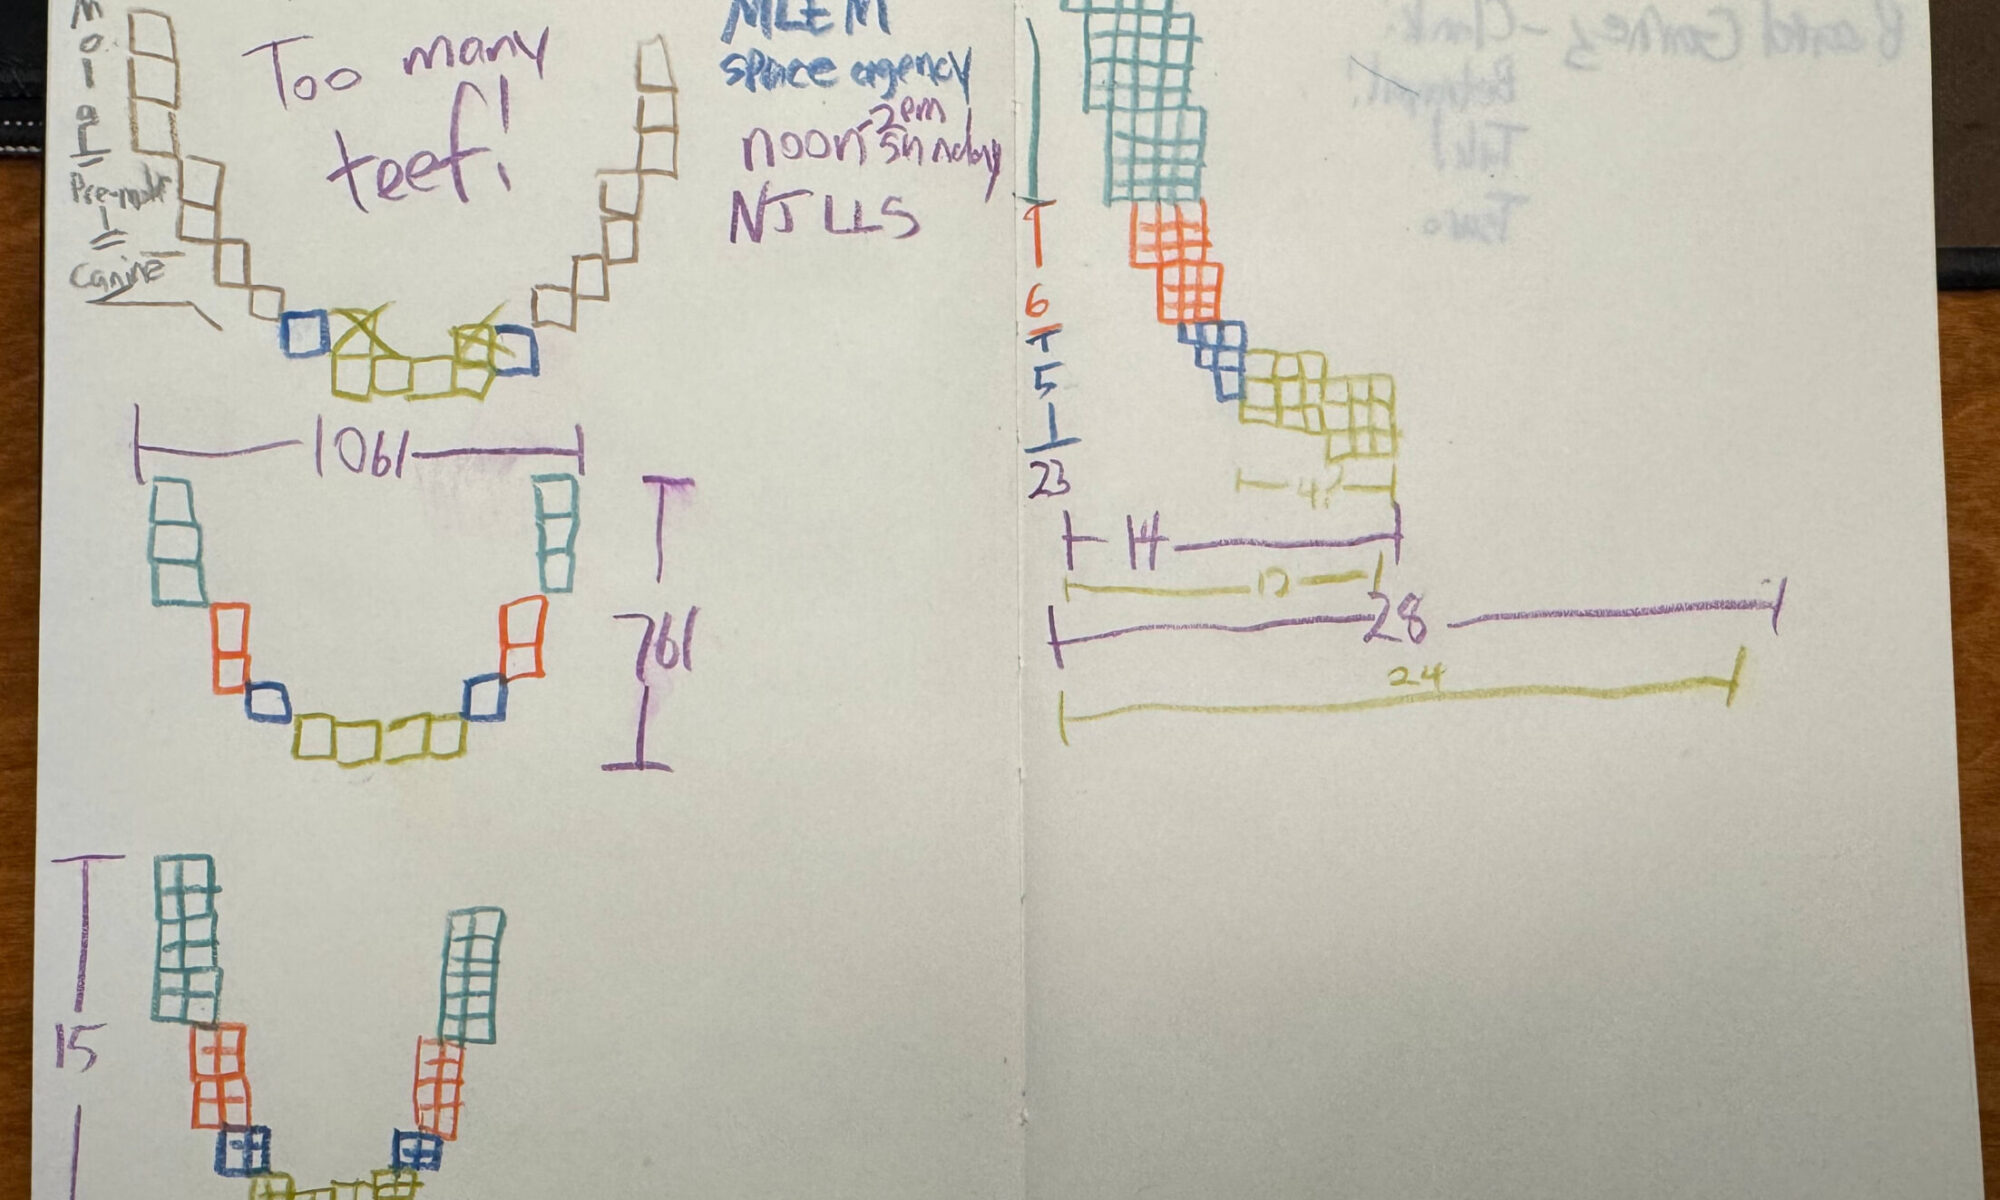 Molar
Pre-molar
Canine
Too many
teef!
MLEM
space agency
noon-2pm
Sunday
NJ LLS
1061
761
15
6
5
23
14
12
28
24